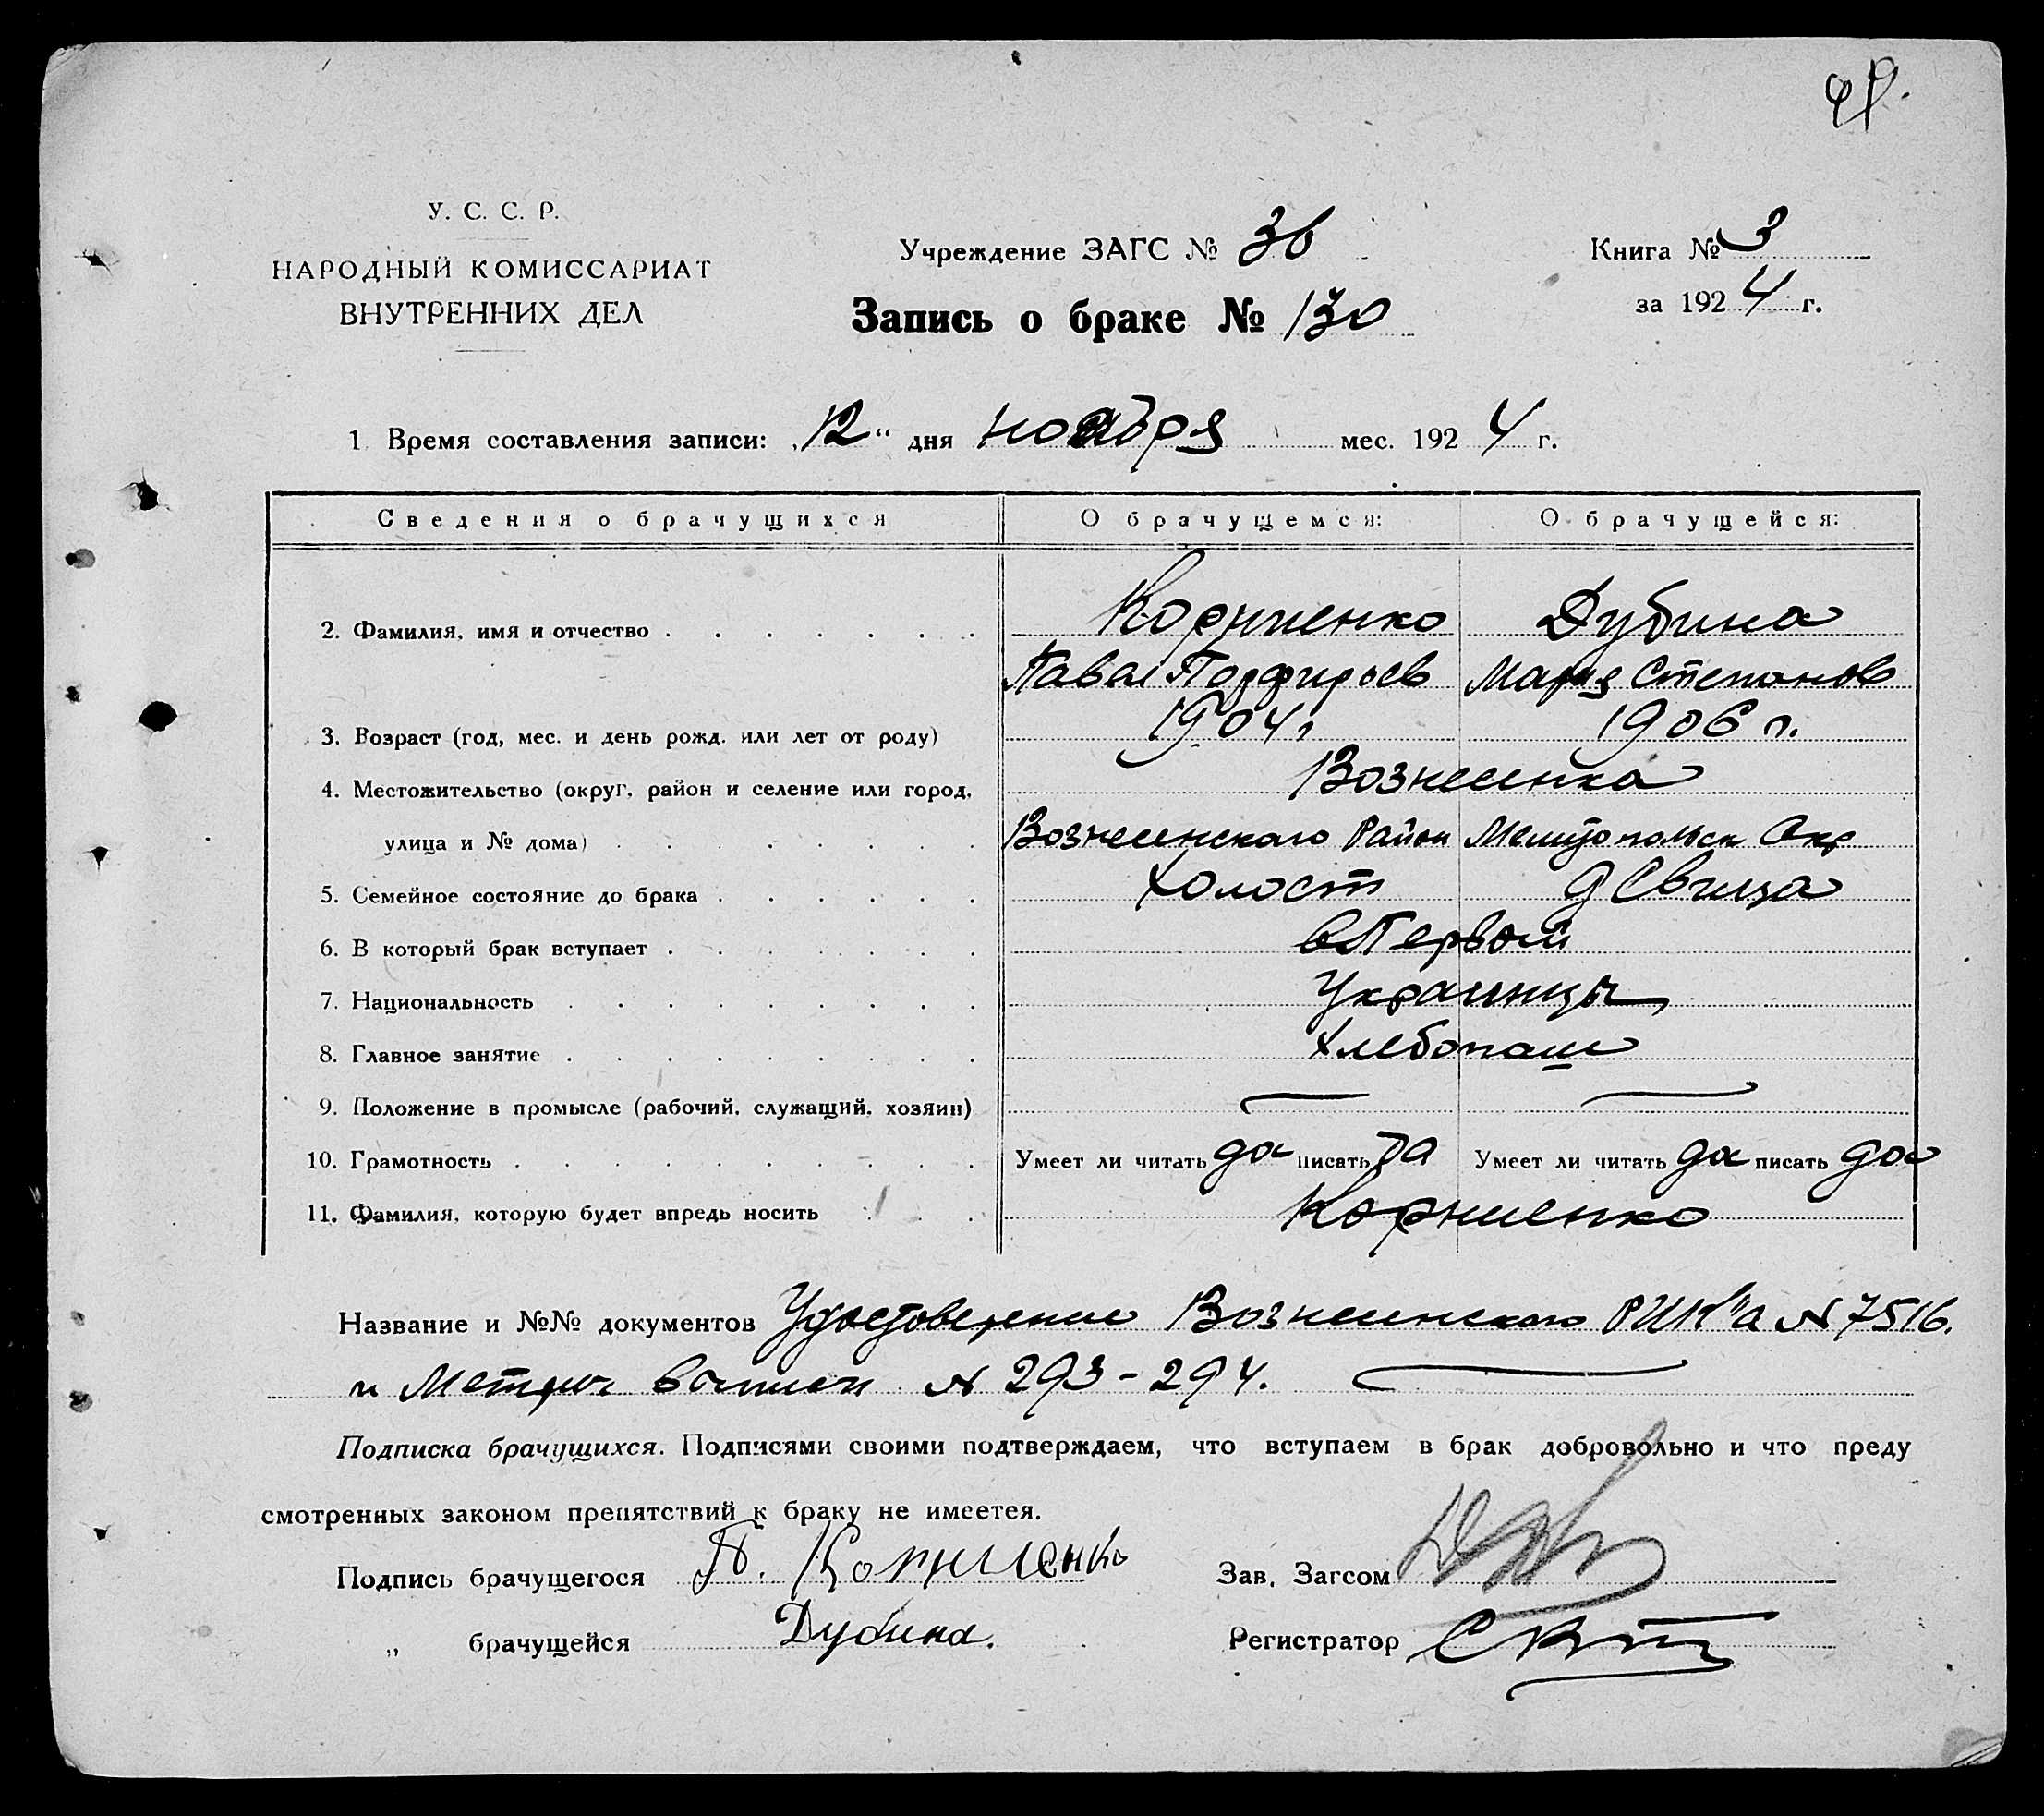 49.
У. С. С. Р.
НАРОДНЫЙ КОМИССАРИАТ
ВНУТРЕННИХ ДЕЛ
Учреждение ЗАГС № 36
Запись о браке № 130
Книга № 3
за 1924 г.
1 Время составления записи: „12“ дня ноября мес. 1924 г.
Сведения о брачущихся О брачущемся: О брачущейся:
2. Фамилия, имя и отчество Корниенко Дубина
Павел Порфирьев Мария Степанов
3. Возраст (год, мес. и день рожд. или лет от роду) 1904 г 1906 г.
4. Местожительство (округ, район и селение или город, Вознесенка
улица и № дома) Вознесенского Район Мелитопольск Окр
5. Семейное состояние до брака Холост девица
6. В который брак вступает в Первый
7. Национальность Украинцы
8. Главное занятие Хлебопаш
9. Положение в промысле (рабочий, служащий, хозяин) — —
10. Грамотность Умеет ли читать да писать да Умеет ли читать да писать да
11. Фамилия, которую будет впредь носить Корниенко
Название и №№ документов Удостоверение Вознесенского РИК"а № 7516.
и Метрич выписи № 293-294.
Подписка брачущихся. Подписями своими подтверждаем, что вступаем в брак добровольно и что преду
смотренных законом препятствий к браку не имеется.
Подпись брачущегося П. Корниенко Зав. Загсом
„ брачущейся Дубина. Регистратор